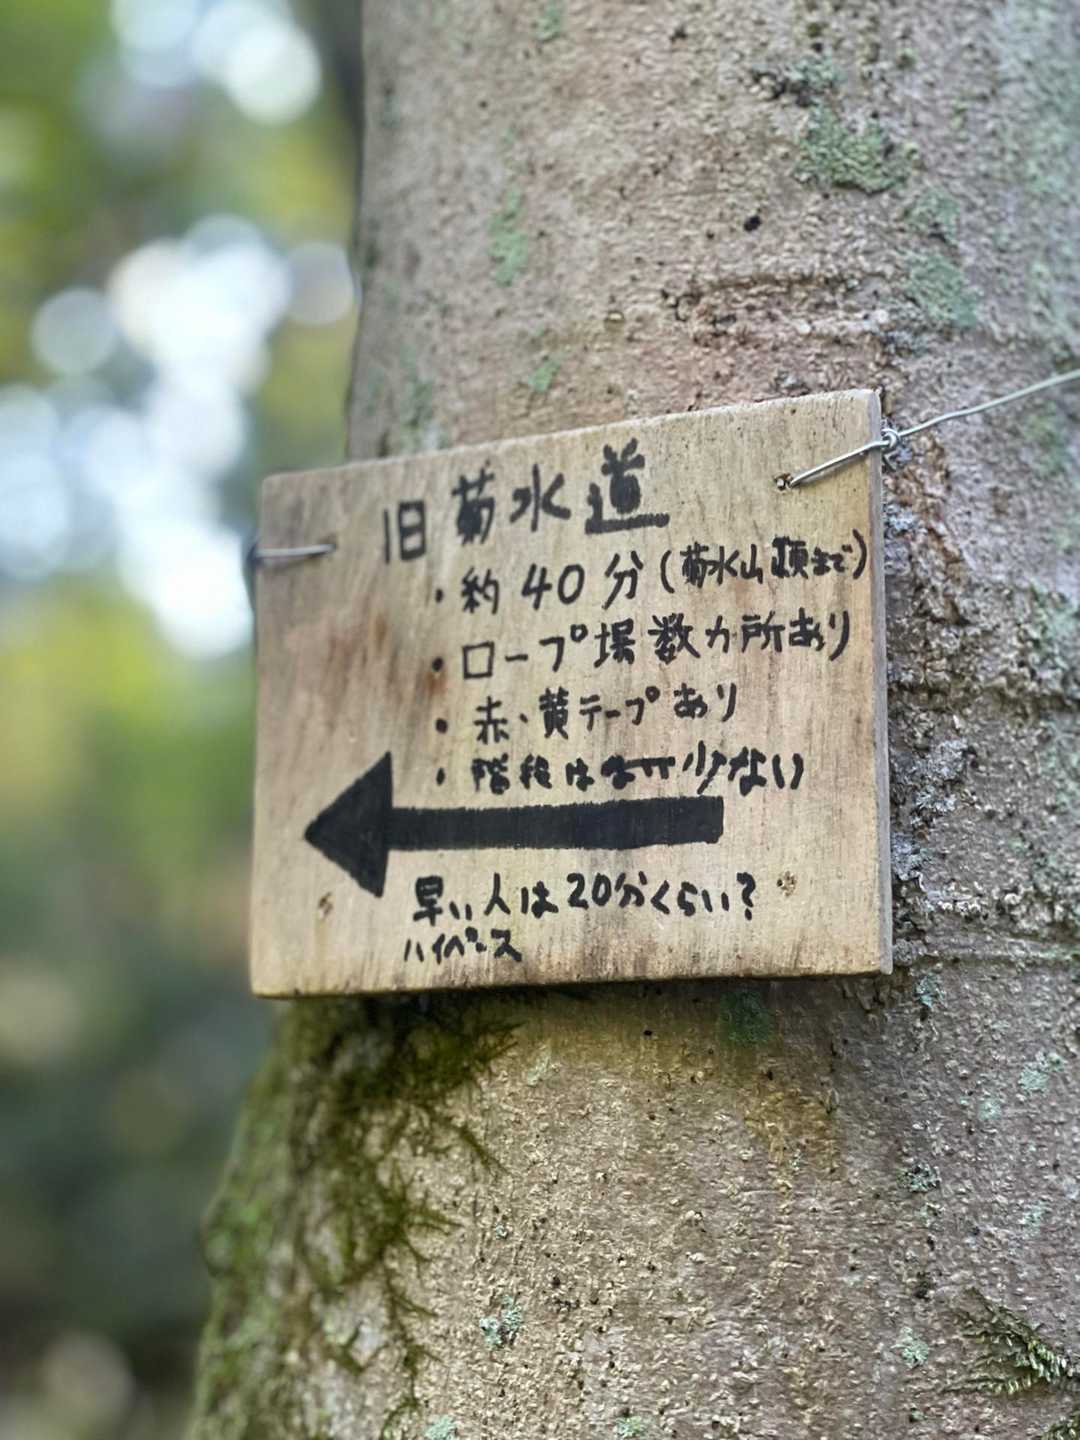 旧菊水道
・約40分(菊水山頂まで)
・ロープ場数カ所あり
・赤、黄テープあり
・階段は少ない
早い人は20分くらい?
ハイペース